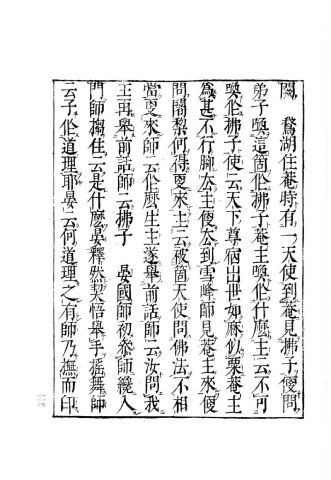 閱　鵞湖住菴時有一天使到菴見拂子便問
弟子喚這箇作拂子菴主喚作什麼主云不可
喚作拂子使云天下尊宿出世如麻似粟菴主
爲甚不行脚太主便太到雪峰師見菴主來便
問闍黎何得㪅來主云被箇天使問佛法不相
當㪅來師云作麼生主遂舉前話師云汝問我
主再舉前話師云拂子　晏國師初參師纔入
門師搊住云是什麼晏釋然契悟舉手搖舞師
云子作道理耶晏云何道理之有師乃撫而印